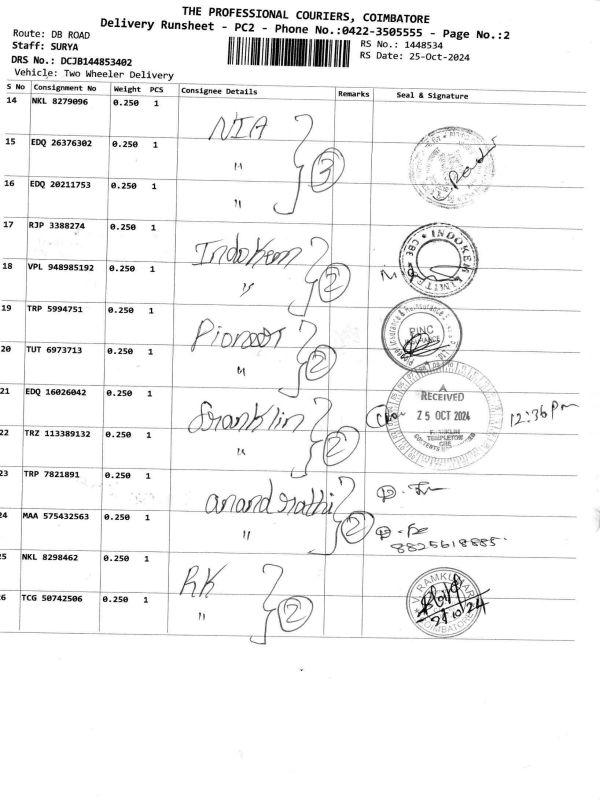 THE PROFESSIONAL COURIERS, COIMBATORE
Delivery Runsheet - PC2 - Phone No.:0422-3505555 - Page No.:2
Route: DB ROAD
Staff: SURYA
DRS No.: DCJB144853402
Vehicle: Two Wheeler Delivery
RS No.: 1448534
RS Date: 25-Oct-2024
S No Consignment No Weight PCS Consignee Details Remarks Seal & Signature
14 NKL 8279096 0.250 1 NIA
15 EDQ 26376302 0.250 1 " 3
16 EDQ 20211753 0.250 1 "
17 RJP 3388274 0.250 1 Indokem INDOKEM CBE
18 VPL 948985192 0.250 1 " 2
19 TRP 5994751 0.250 1 Pioneer PINC INSURANCE
20 TUT 6973713 0.250 1 " 2
21 EDQ 16026042 0.250 1 Franklin RECEIVED 25 OCT 2024 12:36 pm
22 TRZ 113389132 0.250 1 " 2 FRANKLIN TEMPLETON CBE
23 TRP 7821891 0.250 1 anand rathi
24 MAA 575432563 0.250 1 " 2 8825618885
25 NKL 8298462 0.250 1 RK V. RAMKUMAR
26 TCG 50742506 0.250 1 " 2 COIMBATORE